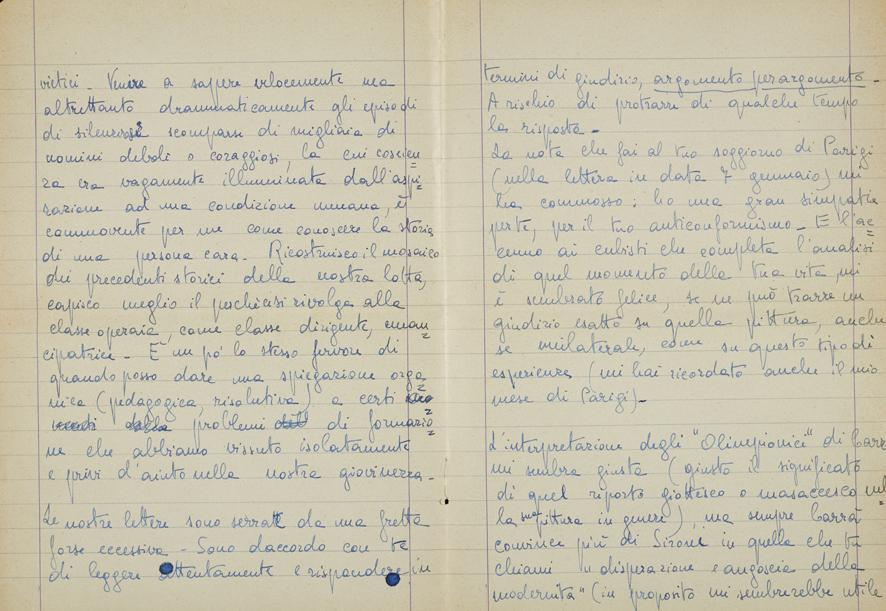 vietici - Venire a sapere velocemente ma
altrettanto drammaticamente gli episodi
di silenziose scomparse di migliaia di
uomini deboli o coraggiosi, la cui coscien=
za era vagamente illuminata dall'aspi=
razione ad una condizione umana, è
commovente per me come conoscere la storia
di una persona cara - Ricostruisco il mosaico
dei precedenti storici della nostra lotta,
capisco meglio il perché ci si rivolga alla
classe operaia, come classe dirigente, eman=
cipatrice - È un po' lo stesso fervore di
quando posso dare una spiegazione orga=
nica (pedagogica, risolutiva) a certi
problemi di formazio=
ne che abbiamo vissuto isolatamente
e privi d'aiuto nella nostra giovinezza -
Le nostre lettere sono serrate da una fretta
forse eccessiva - Sono daccordo con te
di leggere attentamente e rispondere in
termini di giudizio, argomento per argomento -
A rischio di protrarre di qualche tempo
la risposta -
La nota che fai al tuo soggiorno di Parigi
(nella lettera in data 7 gennaio) mi
ha commosso: ho una gran simpatia
per te, per il tuo anticonformismo - E l'ac=
cenno ai cubisti che completa l'analisi
di quel momento della tua vita, mi
è sembrato felice, se ne può trarre un
giudizio esatto su quella pittura, anche
se unilaterale, come su questo tipo di
esperienza (mi hai ricordato anche il mio
mese di Parigi) -
L'interpretazione degli "Olimpionici" di Carrà
mi sembra giusta (giusto il significato
di quel riporto giottesco o masaccesco nel=
la sua pittura in genere), ma sempre Carrà
convince più di Sironi in quella che tu
chiami "disperazione e angoscia della
modernità" (in proposito mi sembrerebbe utile